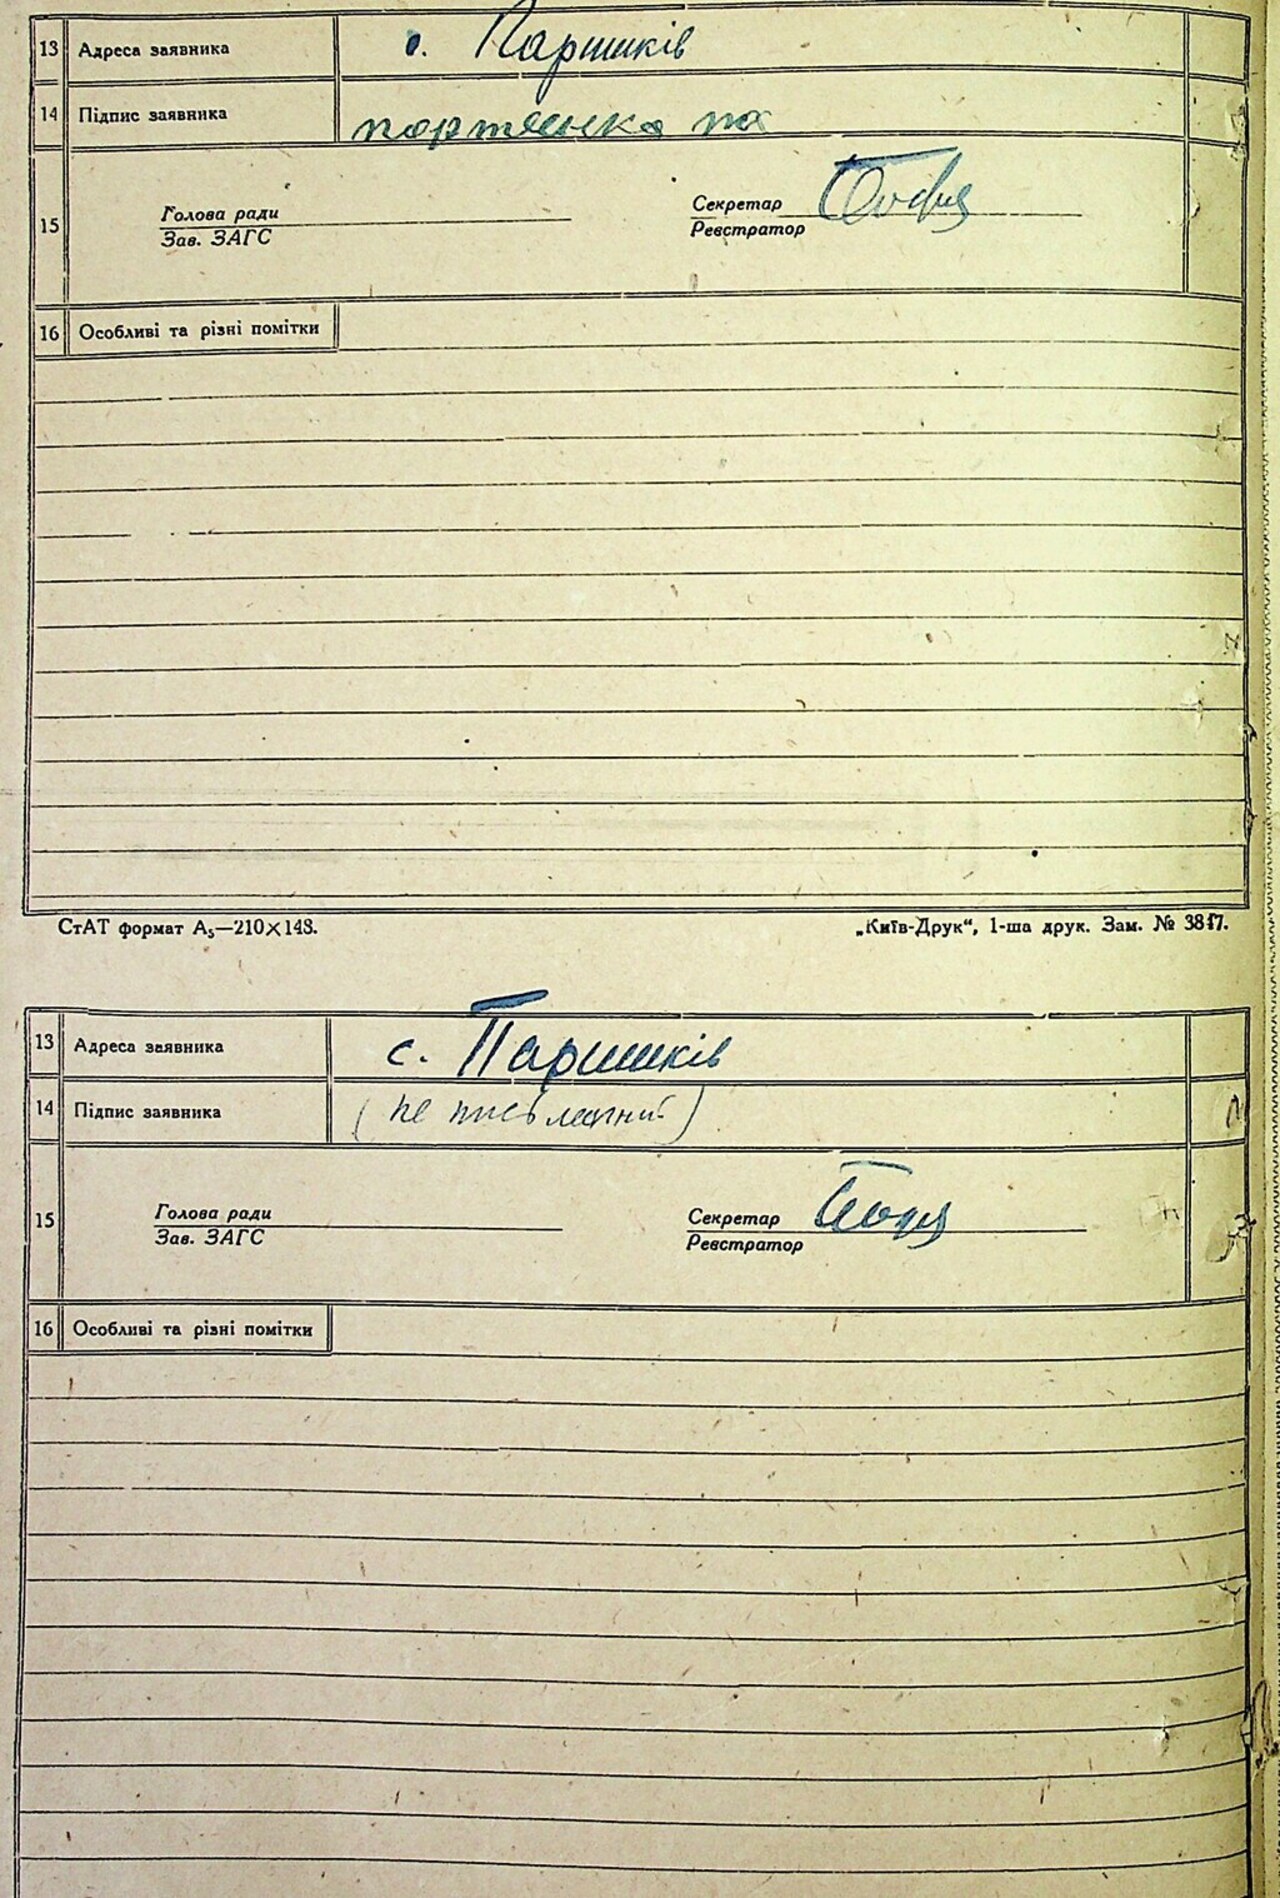 13 Адреса заявника с. Паришків
14 Підпис заявника портянко па
15 Голова ради Секретар
Зав. ЗАГС Реєстратор
16 Особливі та різні помітки
СтАТ формат А₅—210×148. „Київ-Друк“, 1-ша друк. Зам. № 3817.
13 Адреса заявника с. Паришків
14 Підпис заявника (не письменний)
15 Голова ради Секретар
Зав. ЗАГС Реєстратор
16 Особливі та різні помітки